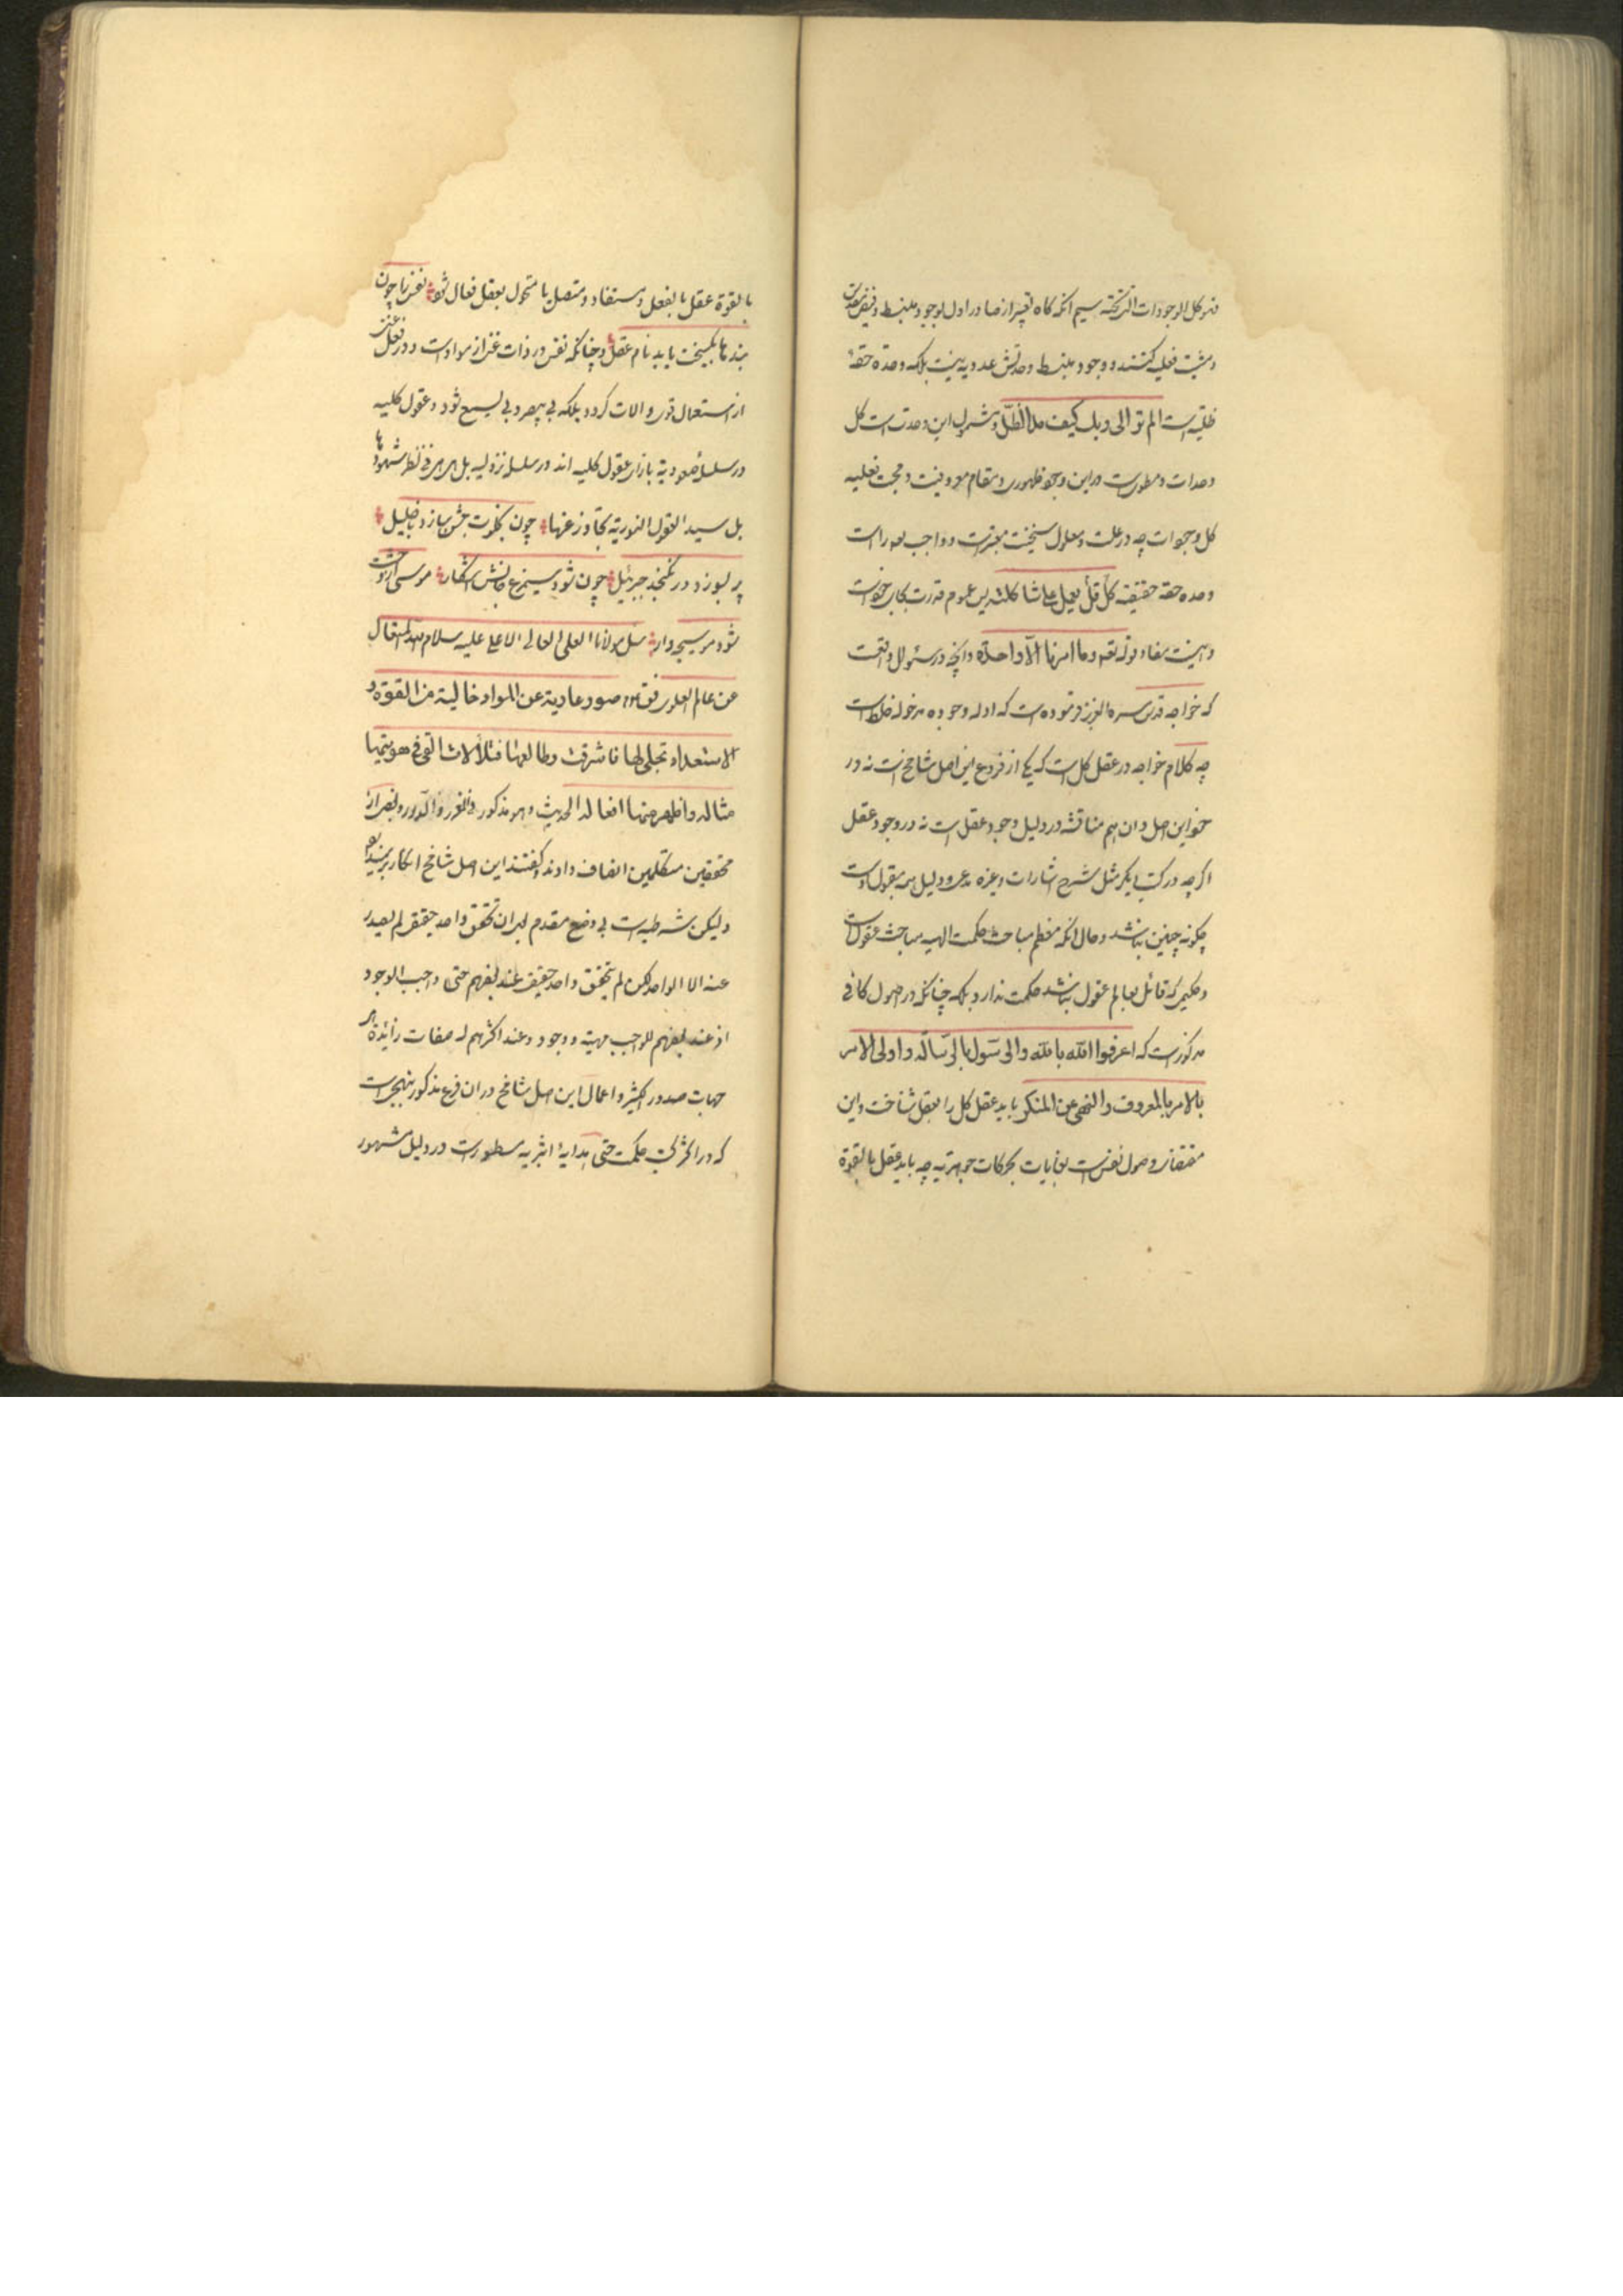 فهو کل الوجودات التی تحته سیم آنکه کاه تعبیر از صادر اول بوجود منبسط و فیض مقدس
و مشیت فعلیه کنند و وجود منبسط وحدتش عددیه نیست بلکه وحدة حقهٔ
ظلیه است الم تر الی ربک کیف مد الظل و شمول این وحدتست کل
وحدات و مطویست در این وجود ظهوری و مقام معروفیت و محبت فعلیه
کل وجودات چه در علت و معلول سنخیت معتبرست و واجب تعه راست
وحده حقه حقیقیه کل یعمل علی شاکلته پس عموم قدرت بجای خود است
و همینست مفاد قوله تعه و ما امرنا الا واحدة و آنچه در سئوال واقعست
که خواجه قدس سره العزیز فرموده است که ادله وجوده مدخولة غلط است
چه کلام خواجه در عقل کل است که یکی از فروع این اصل شامخ است نه در
خود این اصل و ان هم مناقشه در دلیل وجود عقل است نه در وجود عقل
اکر چه در کتب دیکر مثل شرح اشارات و غیره مدعی و دلیل همه مقبول اوست
چکونه چنین نباشد و حال آنکه معظم مباحث حکمت الهیه مباحث عقول است
و حکیمی که قائل بعالم عقول نباشد حکمت ندارد بلکه چنانکه در اصول کافی
مذکورست که اعرفوا الله بالله والرسول بالرسالة و اولی الامر
بالامر بالمعروف والنهی عن المنکر باید عقل کل را بعقل شناخت و این
مقتضای وصول نفس است بغایات بحرکات جوهریه چه باید عقل بالقوة
بالقوة عقل بالفعل و مستفاد و متصل یا متحول بعقل فعال شود نفس را چون
بندها بکسیخت یابد نام عقل و چنانکه نفس در ذات غنی از مواد است و در فعل غنی
از استعمال قوی و الات کردد بلکه بی یبصر و بی یسمع شود و عقول کلیه
در سلسلهٔ صعودیة بازای عقول کلیه اند در سلسله نزولیه بل هی هی فی نظر شهودها
بل سید العقول النوریة تجاوز عنها چون بخلوت جشن سازد با خلیل
پر بسوزد در نکنجد جبرئیل چون شود سیمرغ جانش آشکار موسی از وحشت
شود موسیجه وار سئل مولانا العلی العالی الاعلی علیه سلام الله المتعال
عن عالم العلوی فقال صور عاریة عن المواد خالیة من القوة و
الاستعداد تجلی لها فاشرقت و طالعها فتلألأت القی فی هویتها
مثاله و اظهر عنها افعاله الحدیث و هو مذکور فی الغرر و الدرر و بعضی از
محققین متکلمین انصاف دادند و کفتند این اصل شامخ انکار پذیر نیست
و لیکن شرطیه است بی وضع مقدم ای ان تحقق واحد حقیقی لم یصدر
عنه الا الواحد لکن لم یتحقق واحد حقیقی عند بعضهم حتی واجب الوجود
اذ عند بعضهم للواجب مهیة و وجود و عند اکثرهم له صفات زائدة هی
جهات صدور الکثیر و اعمال این اصل شامخ در ان فرع مذکور بنهجی است
که در اکثر کتب حکمت حتی هدایهٔ اثیریه مسطورست در دلیل مشهور